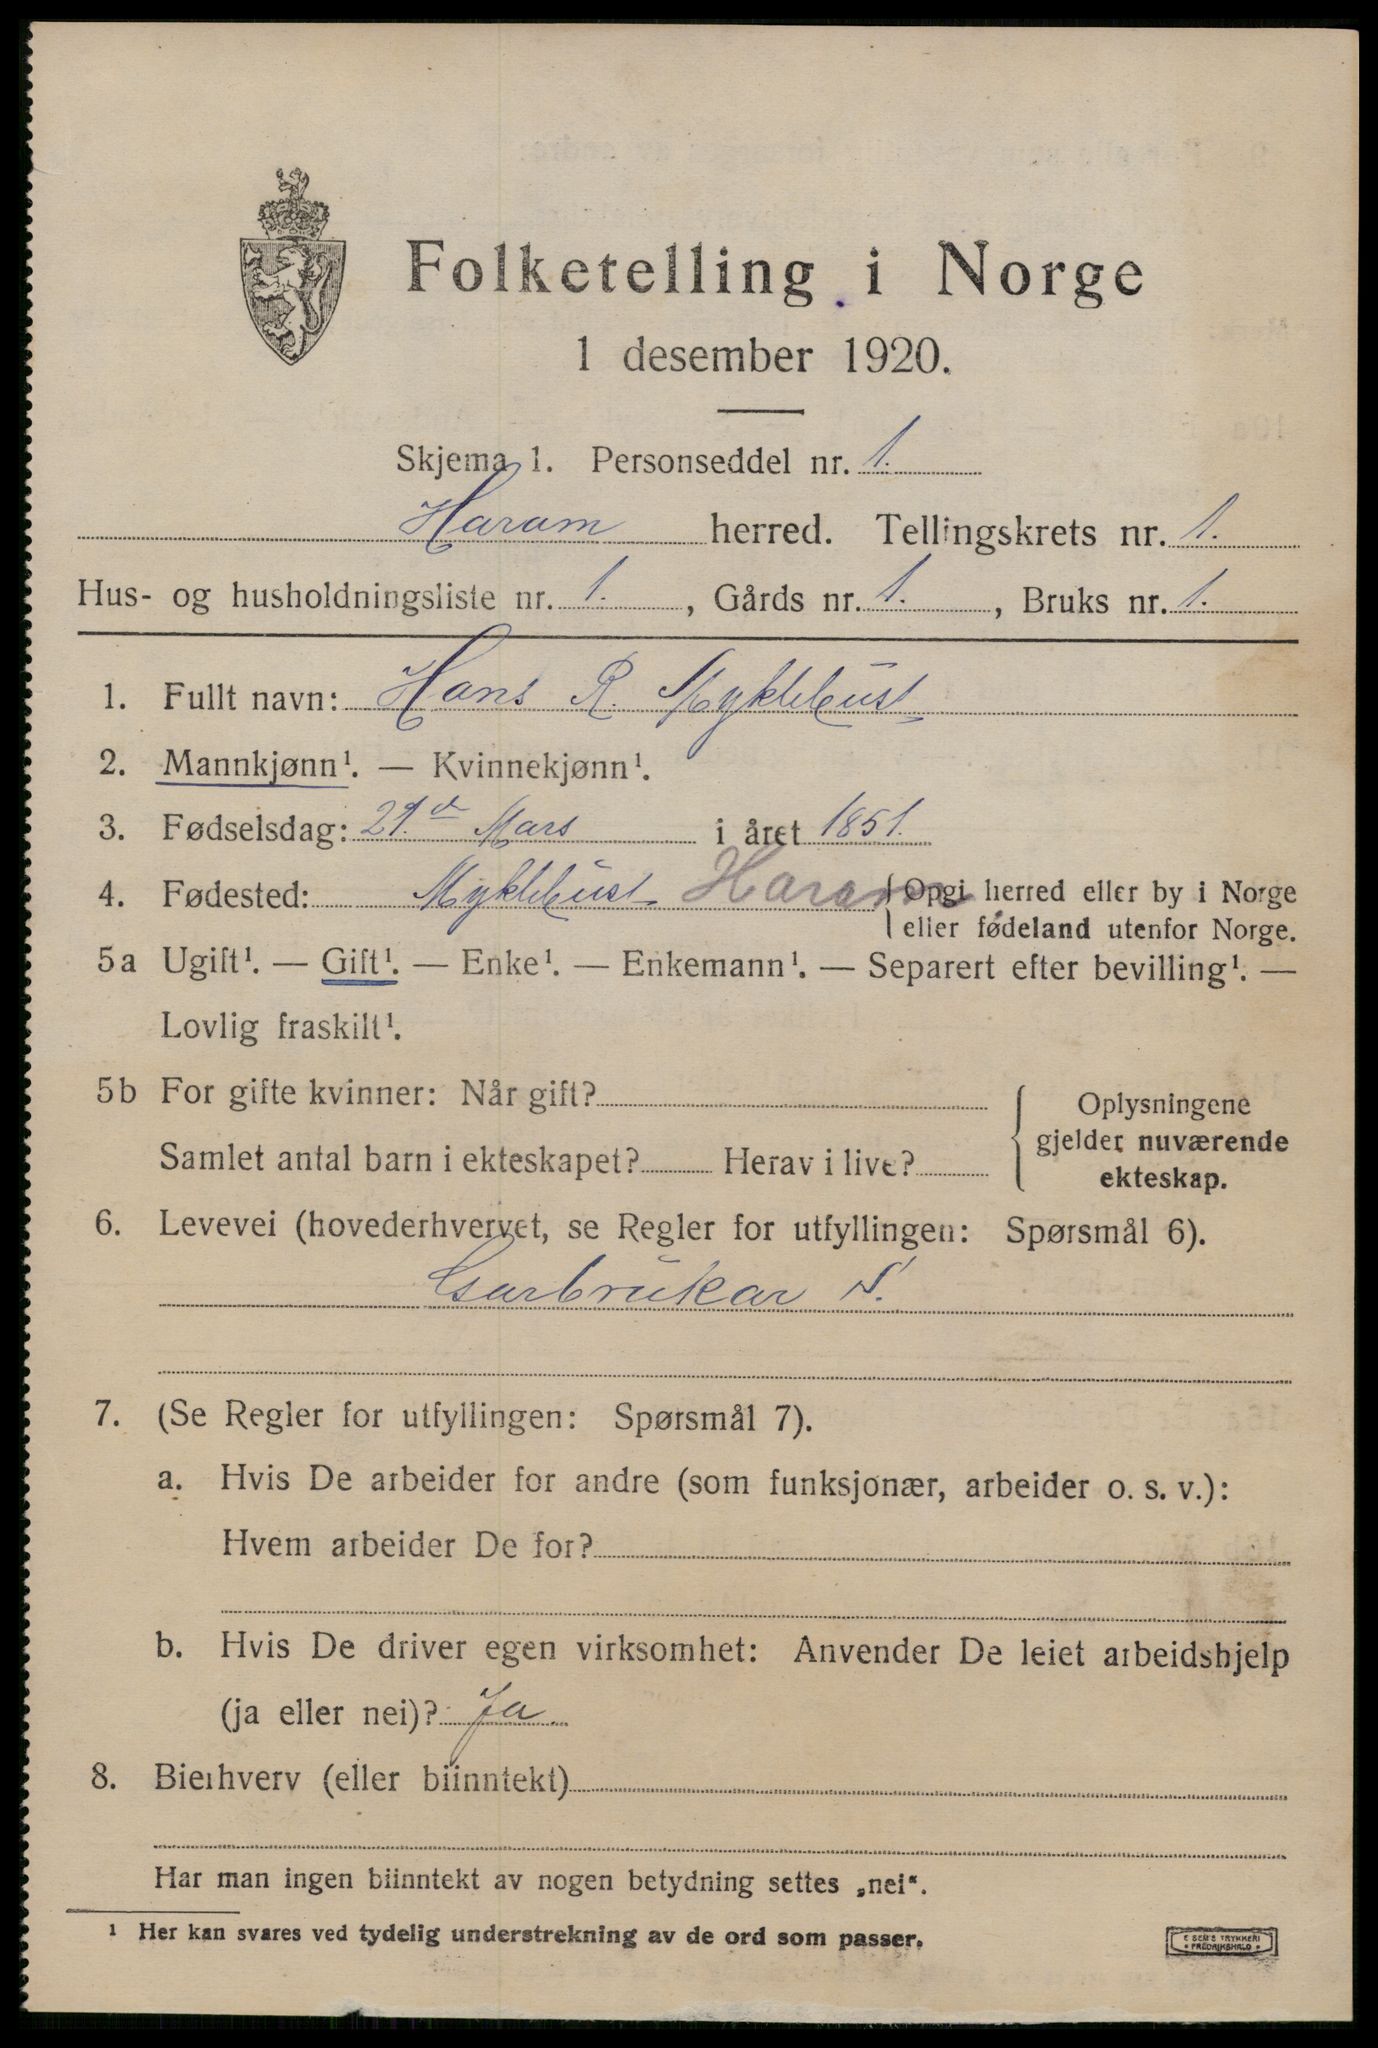 Folketelling i Norge
1 desember 1920.
Skjema 1. Personseddel nr. 1.
Haram herred. Tellingskrets nr. 1.
Hus- og husholdningsliste nr. 1. , Gårds nr. 1. , Bruks nr. 1.
1. Fullt navn: Hans R. Myklebust
2. Mannkjønn¹. — Kvinnekjønn¹.
3. Fødselsdag: 29.de Mars i året 1851.
4. Fødested: Myklebust Haram { Opgi herred eller by i Norge
eller fødeland utenfor Norge.
5a Ugift¹. — Gift¹. — Enke¹. — Enkemann¹. — Separert efter bevilling¹. —
Lovlig fraskilt¹.
5b For gifte kvinner: Når gift? { Oplysningene
gjelder nuværende
Samlet antal barn i ekteskapet? Herav i live?
ekteskap.
6. Levevei (hovederhvervet, se Regler for utfyllingen: Spørsmål 6).
Garbrukar S.
7. (Se Regler for utfyllingen: Spørsmål 7).
a. Hvis De arbeider for andre (som funksjonær, arbeider o. s. v.):
Hvem arbeider De for?
b. Hvis De driver egen virksomhet: Anvender De leiet arbeidshjelp
(ja eller nei)? Ja.
8. Bierhverv (eller biinntekt)
Har man ingen biinntekt av nogen betydning settes „nei".
¹ Her kan svares ved tydelig understrekning av de ord som passer.
E SEM'S TRYKKERI
FREDRIKSHALD